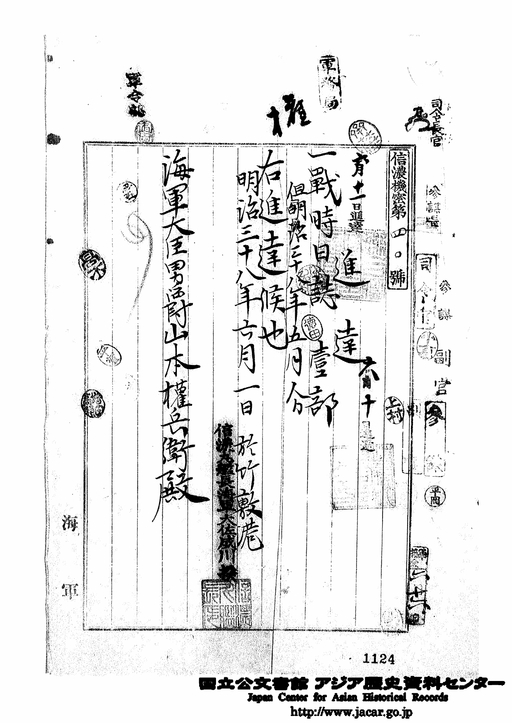 司令長官
參謀
軍務局
軍令部
權
信濃機密第四〇號
進達
六月十一日
六月十
一戰時日誌 壹部
但明治三十八年五月分
右進達候也
明治三十八年六月一日 於竹敷港
信濃丸艦長海軍大佐成川揆
海軍大臣男爵山本權兵衛殿
參謀
副官
上村
海軍
1124
国立公文書館 アジア歴史資料センター
Japan Center for Asian Historical Records
http://www.jacar.go.jp